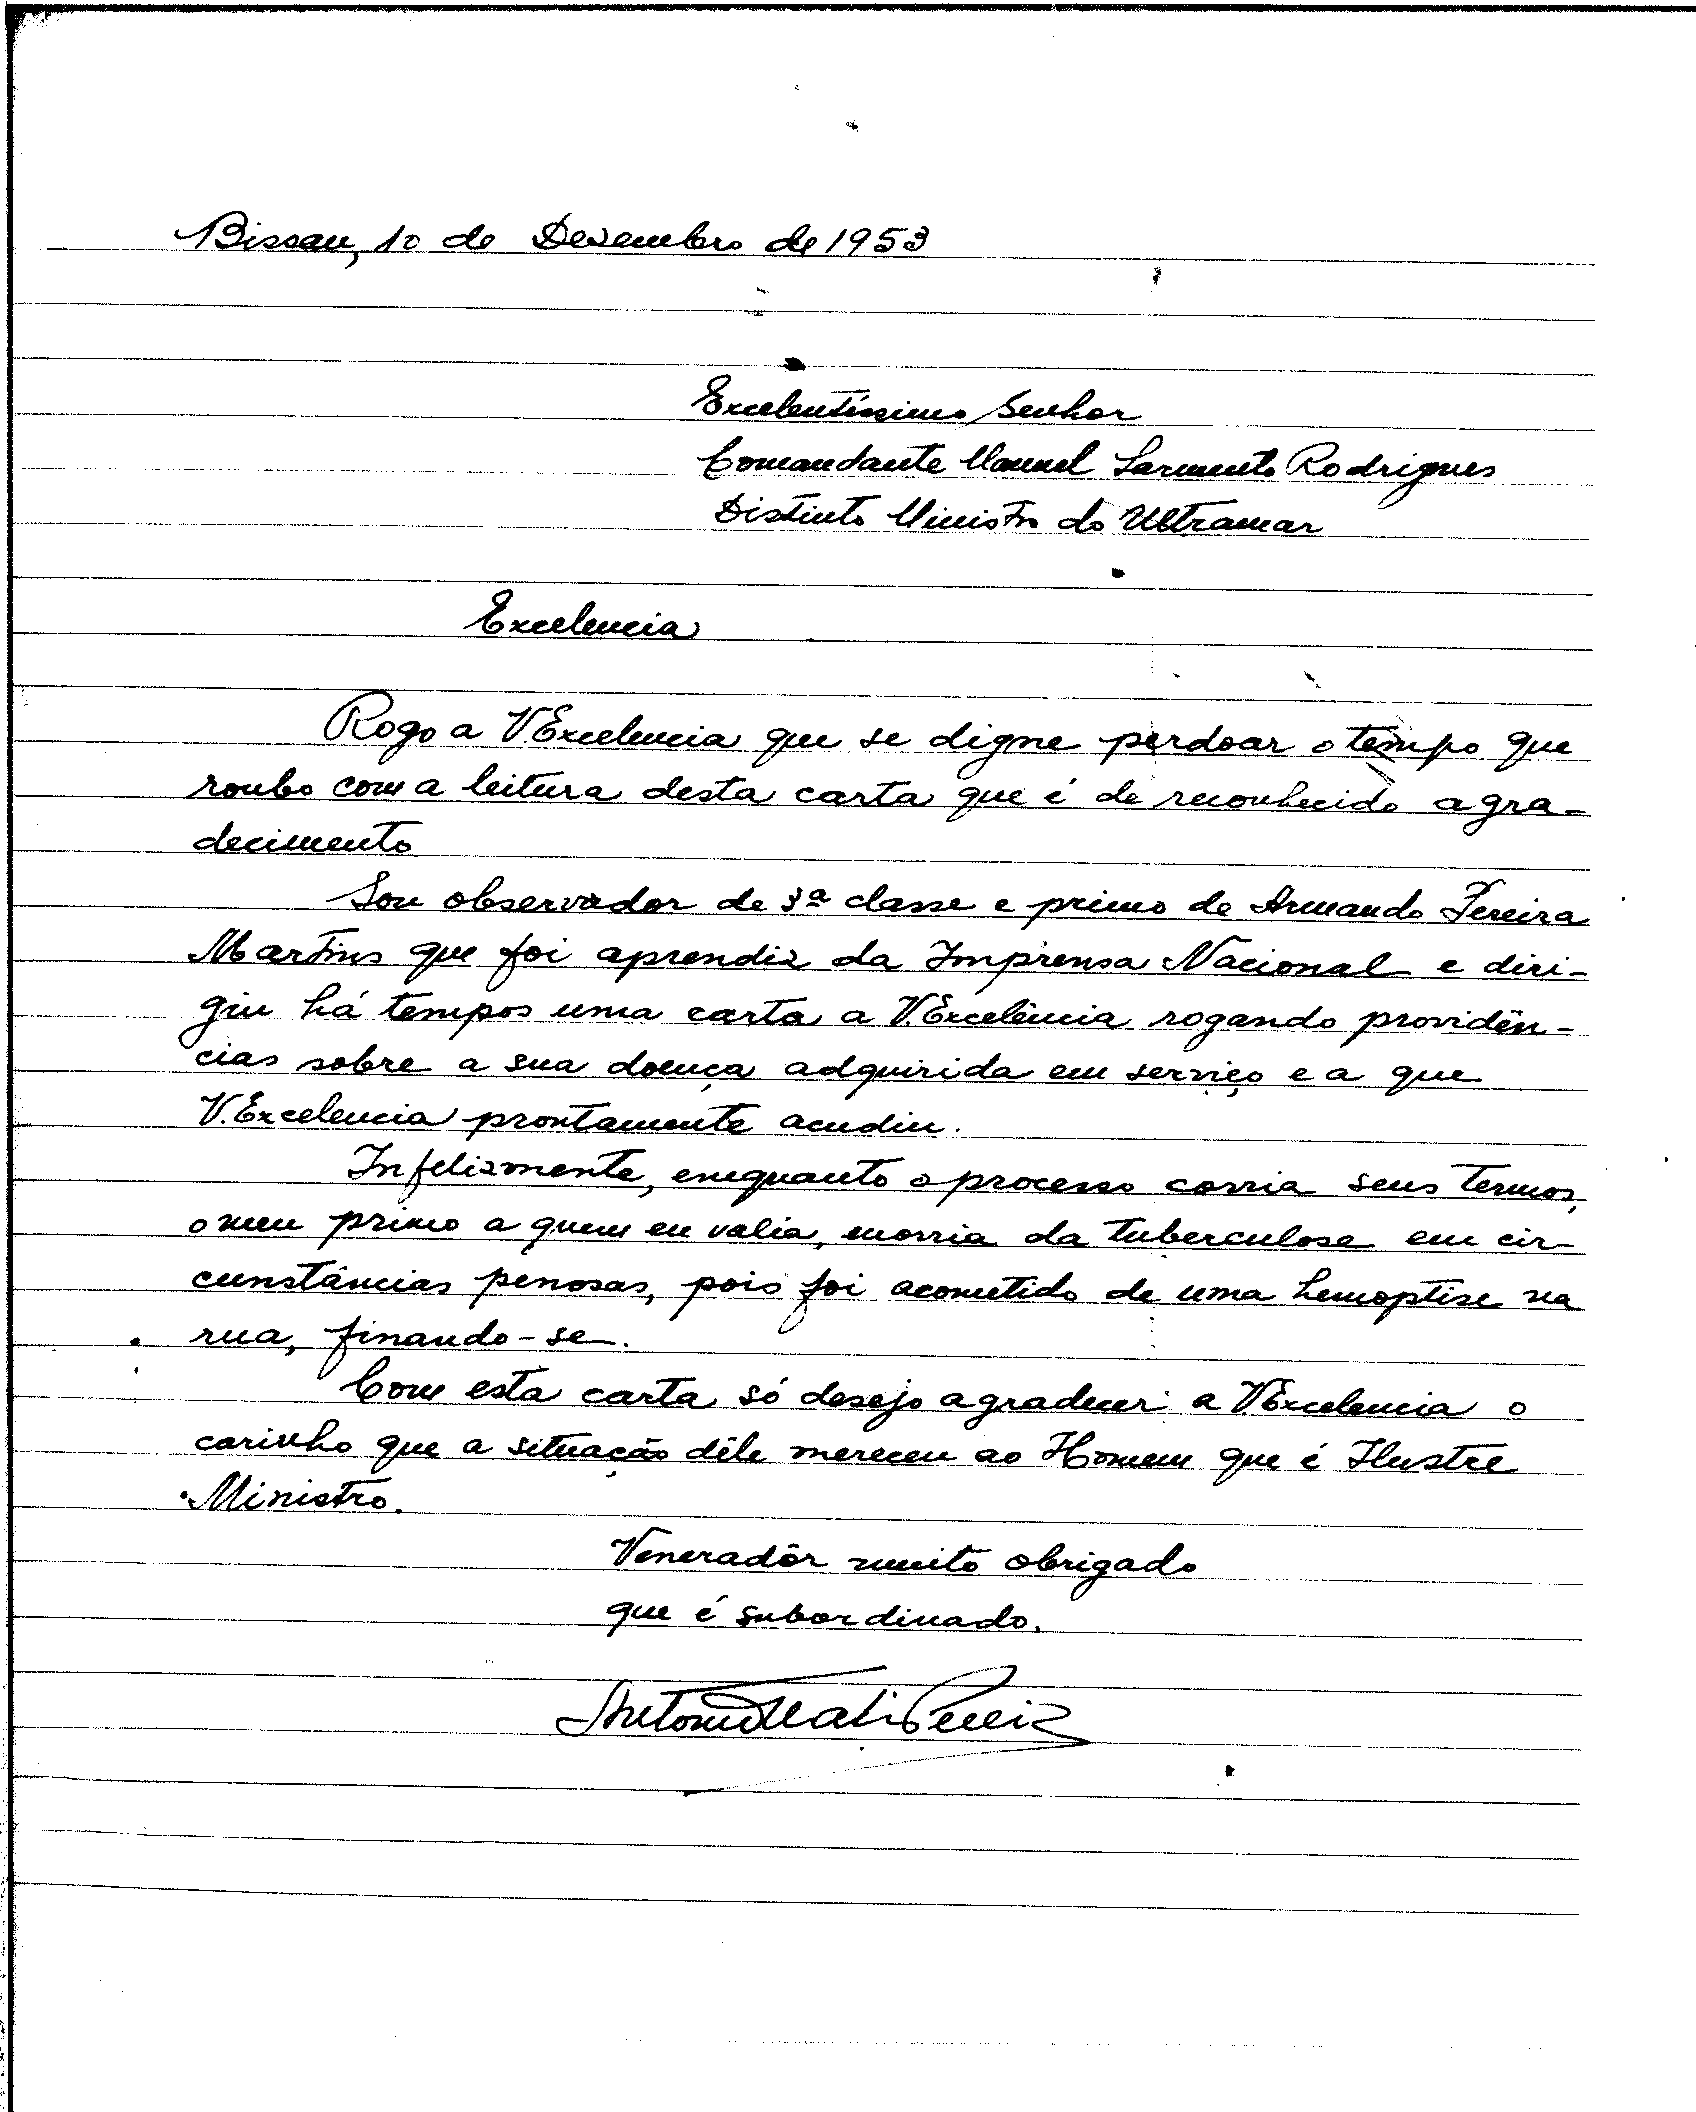 Bissau, 10 de Dezembro de 1953
Excelentíssimo Senhor
Comandante Manuel Sarmento Rodrigues
Distinto Ministro do Ultramar
Excelencia
Rogo a V Excelencia que se digne perdoar o tempo que
roubo com a leitura desta carta que é de reconhecido agra-
decimento
Sou observador de 3ª classe e primo de Armando Pereira
Martins que foi aprendiz da Imprensa Nacional e diri-
giu há tempos uma carta a V. Excelência rogando providên-
cias sobre a sua doença adquirida em serviço e a que
V. Excelencia prontamente acudiu.
Infelizmente, enquanto o processo corria seus termos,
o meu primo a quem eu valia, morria da tuberculose em cir-
cunstâncias penosas, pois foi acometido de uma hemoptise na
rua, finando-se.
Com esta carta só desejo agradecer a V Excelencia o
carinho que a situação dêle mereceu ao Homem que é Ilustre
Ministro.
Veneradôr muito obrigado
que é subordinado.